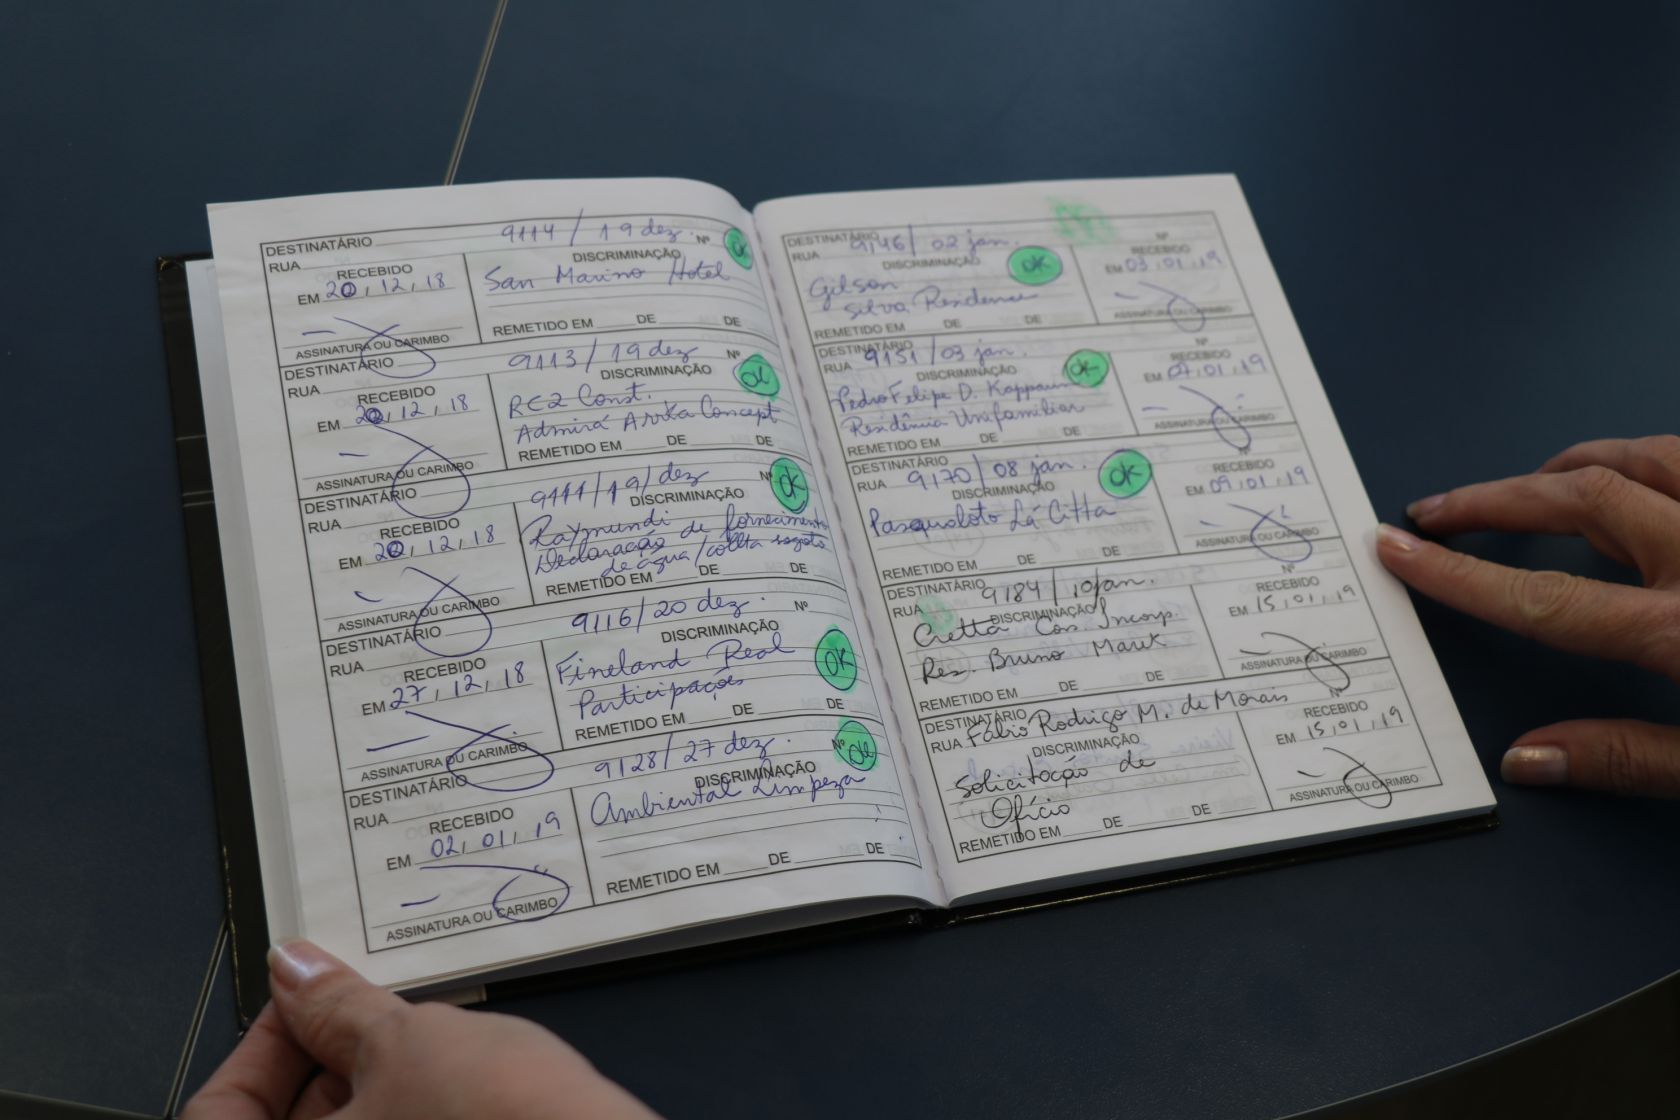 DESTINATÁRIO 9114 / 19 dez.
RUA Nº OK
RECEBIDO DISCRIMINAÇÃO
EM 20 , 12 , 18 San Marino Hotel
ASSINATURA OU CARIMBO REMETIDO EM ____ DE ____ DE
DESTINATÁRIO 9113 / 19 dez
RUA Nº OK
RECEBIDO DISCRIMINAÇÃO
EM 20 , 12 , 18 RE2 Const.
Admirá Concept
ASSINATURA OU CARIMBO REMETIDO EM ____ DE ____ DE
DESTINATÁRIO 9111 / 19 / dez
RUA Nº OK
RECEBIDO DISCRIMINAÇÃO
EM 20 , 12 , 18 Raymundi
Declaração de fornecimento
de água / esgoto
ASSINATURA OU CARIMBO REMETIDO EM ____ DE ____ DE
DESTINATÁRIO 9116 / 20 dez.
RUA Nº
RECEBIDO DISCRIMINAÇÃO
EM 27 , 12 , 18 Fineland Real OK
Participações
ASSINATURA OU CARIMBO REMETIDO EM ____ DE ____ DE
DESTINATÁRIO 9128 / 27 dez.
RUA Nº OK
RECEBIDO DISCRIMINAÇÃO
EM 02 , 01 , 19 Ambiental Limpeza
ASSINATURA OU CARIMBO REMETIDO EM ____ DE ____ DE
DESTINATÁRIO 9146 / 02 jan. Nº
RUA DISCRIMINAÇÃO OK RECEBIDO
Gilson EM 03 , 01 , 19
Silva Residence
REMETIDO EM ____ DE ____ DE ASSINATURA OU CARIMBO
DESTINATÁRIO 9151 / 03 jan. Nº
RUA DISCRIMINAÇÃO OK RECEBIDO
Pedro Felipe D. EM 07 , 01 , 19
Residência Unifamiliar
REMETIDO EM ____ DE ____ DE ASSINATURA OU CARIMBO
DESTINATÁRIO 9170 / 08 jan. Nº
RUA DISCRIMINAÇÃO OK RECEBIDO
Pasqualoto Lá Citta EM 09 , 01 , 19
REMETIDO EM ____ DE ____ DE ASSINATURA OU CARIMBO
DESTINATÁRIO 9184 / 10 jan. Nº
RUA DISCRIMINAÇÃO RECEBIDO
Cos. Incorp. EM 15 , 01 , 19
Res. Bruno
REMETIDO EM ____ DE ____ DE ASSINATURA OU CARIMBO
DESTINATÁRIO Nº
RUA Fábio Rodrigo M. de Morais RECEBIDO
DISCRIMINAÇÃO EM 15 , 01 , 19
Solicitação de
Ofício
REMETIDO EM ____ DE ____ DE ASSINATURA OU CARIMBO